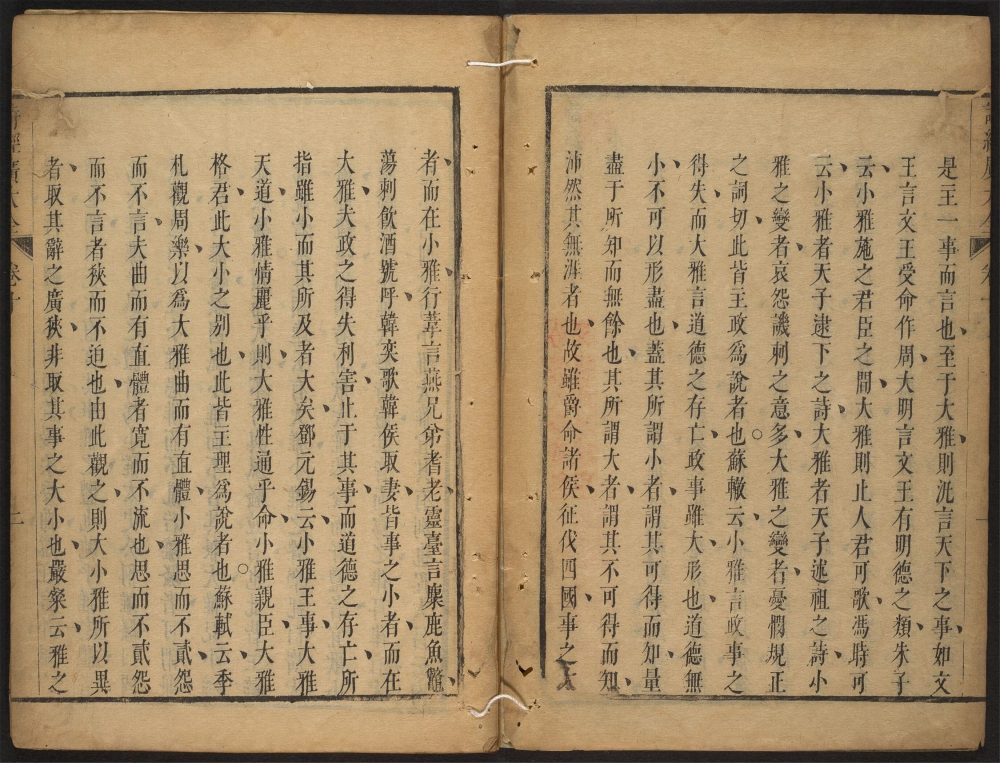 是王一事而言也至于大雅則泛言天下之事如文
王言文王受命作周大明言文王有明德之類朱子
云小雅施之君臣之間大雅則止人君可歌馮時可
云小雅者天子逮下之詩大雅者天子述祖之詩小
雅之變者哀怨譏刺之意多大雅之變者憂憫規正
之詞切此皆主政爲說者也蘇轍云小雅言政事之
得失而大雅言道德之存亡政事雖大形也道德無
小不可以形盡也蓋其所謂小者謂其可得而知量
盡于所知而無餘也其所謂大者謂其不可得而知
沛然其無涯者也故雖爵命諸侯征伐四國事之大
者而在小雅行葦言燕兄弟耆老靈臺言麋鹿魚鼈
蕩刺飲酒號呼韓奕歌韓侯取妻皆事之小者而在
大雅夫政之得失利害止于其事而道德之存亡所
指雖小而其所及者大矣鄧元錫云小雅王事大雅
天道小雅情麗乎則大雅性通乎命小雅親臣大雅
格君此大小之别也此皆主理爲說者也蘇軾云季
札觀周樂以爲大雅曲而有直體小雅思而不貳怨
而不言夫曲而有直體者寛而不流也思而不貳怨
而不言者狹而不迫也由此觀之則大小雅所以異
者取其辭之廣狹非取其事之大小也嚴粲云雅之
詩經廣大全
卷十
二